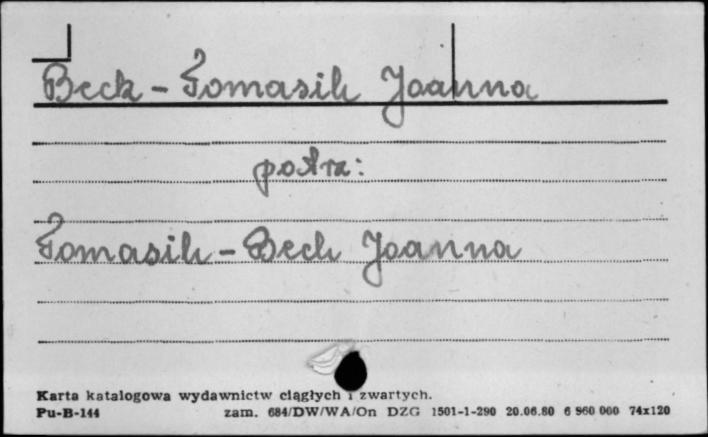 Beck-Tomasik Joanna
patrz:
Tomasik-Beck Joanna
Karta katalogowa wydawnictw ciągłych i zwartych.
Pu-B-144 zam. 684/DW/WA/On DZG 1501-1-290 20.06.80 6 960 000 74x120